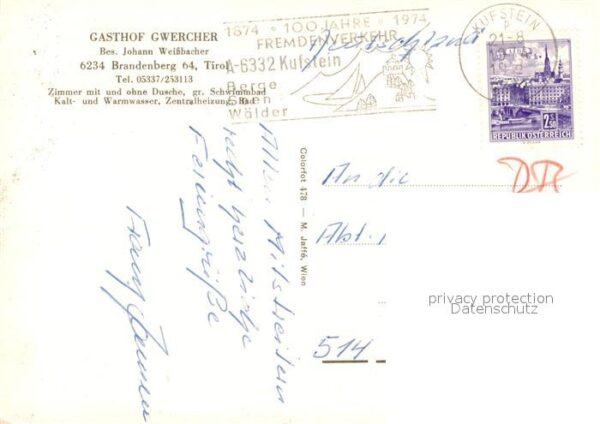 GASTHOF GWERCHER
Bes. Johann Weißbacher
6234 Brandenberg 64, Tirol
Tel. 05337/253113
Zimmer mit und ohne Dusche, gr. Schwimmbad
Kalt- und Warmwasser, Zentralheizung, Bad
1874 * 100 JAHRE * 1974
FREMDENVERKEHR
A-6332 Kufstein
Berge
Seen
Wälder
Deutschland
KUFSTEIN
21-8
2.50
REPUBLIK ÖSTERREICH
Colorfot 478 — M. Jaffé, Wien
An die
Abt.
514
Allen Mitstreitern
recht herzliche
Feriengrüße
privacy protection
Datenschutz